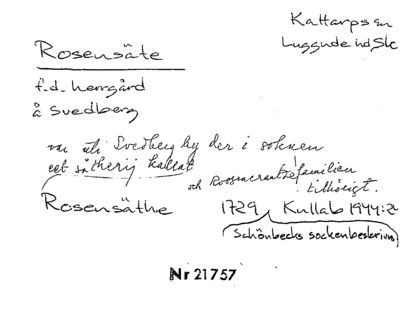 Kattarps sn
Luggude hd Skc
Rosensäte
f.d. herrgård
å Svedberg
var uti Svedberg by der i soknen
ett sätherij kallat
och Roosencrantzefamilien
tillhörigt.
Rosensäthe 1729 Kullab 1944:2
Schönbecks sockenbeskrivn
Nr 21757